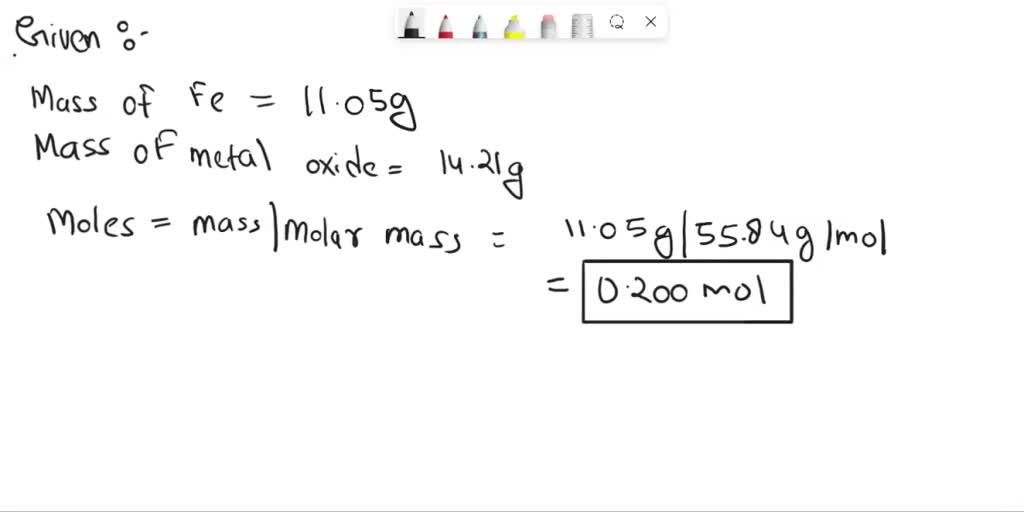 Given :-
Mass of Fe = 11.05g
Mass of metal oxide = 14.21g
Moles = mass | Molar mass = 11.05g | 55.84g | mol
= 0.200 mol